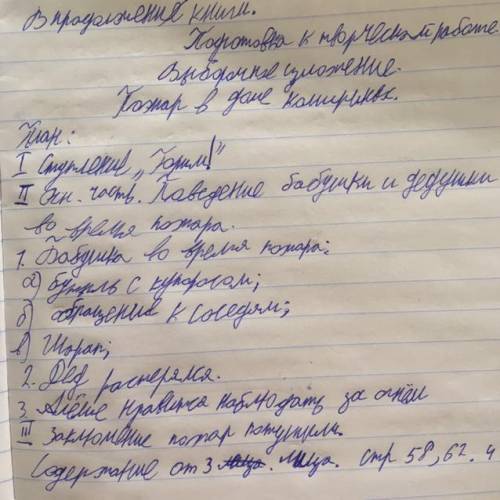 В продолжение книги.
Подготовка к творческой работе
Выборочное изложение.
Пожар в доме Кашириных.
План:
I Ступление „Горим!"
II Осн. часть. Поведение бабушки и дедушки
во время пожара.
1. Бабушка во время пожара:
а) бутыль с купоросом;
б) обращение к соседям;
в) Шарап;
2. Дед растерялся.
3. Алёше нравится наблюдать за огнём
III Заключение пожар потушили.
Содержание от 3 лица. стр 58, 62. ч